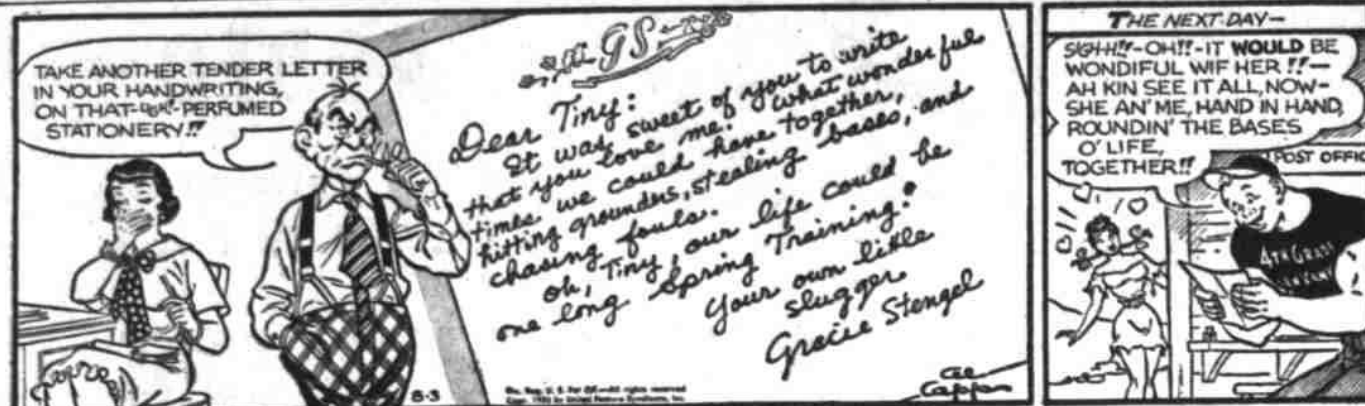 TAKE ANOTHER TENDER LETTER
IN YOUR HANDWRITING,
ON THAT-UGH!-PERFUMED
STATIONERY!!
GS
Dear Tiny:
It was sweet of you to write
that you love me. What wonderful
times we could have together,
hitting grounders, stealing bases, and
chasing fouls.
Oh, Tiny, our life could be
one long Spring Training!
Your own little
slugger
Gracie Stengel
8-3
Reg. U. S. Pat. Off.—All rights reserved
Copr. by United Feature Syndicate, Inc.
THE NEXT DAY—
SIGH-H!!-OH!!-IT WOULD BE
WONDIFUL WIF HER!!—
AH KIN SEE IT ALL, NOW-
SHE AN' ME, HAND IN HAND,
ROUNDIN' THE BASES
O' LIFE,
TOGETHER!!
POST OFFIC
4TH GRADE